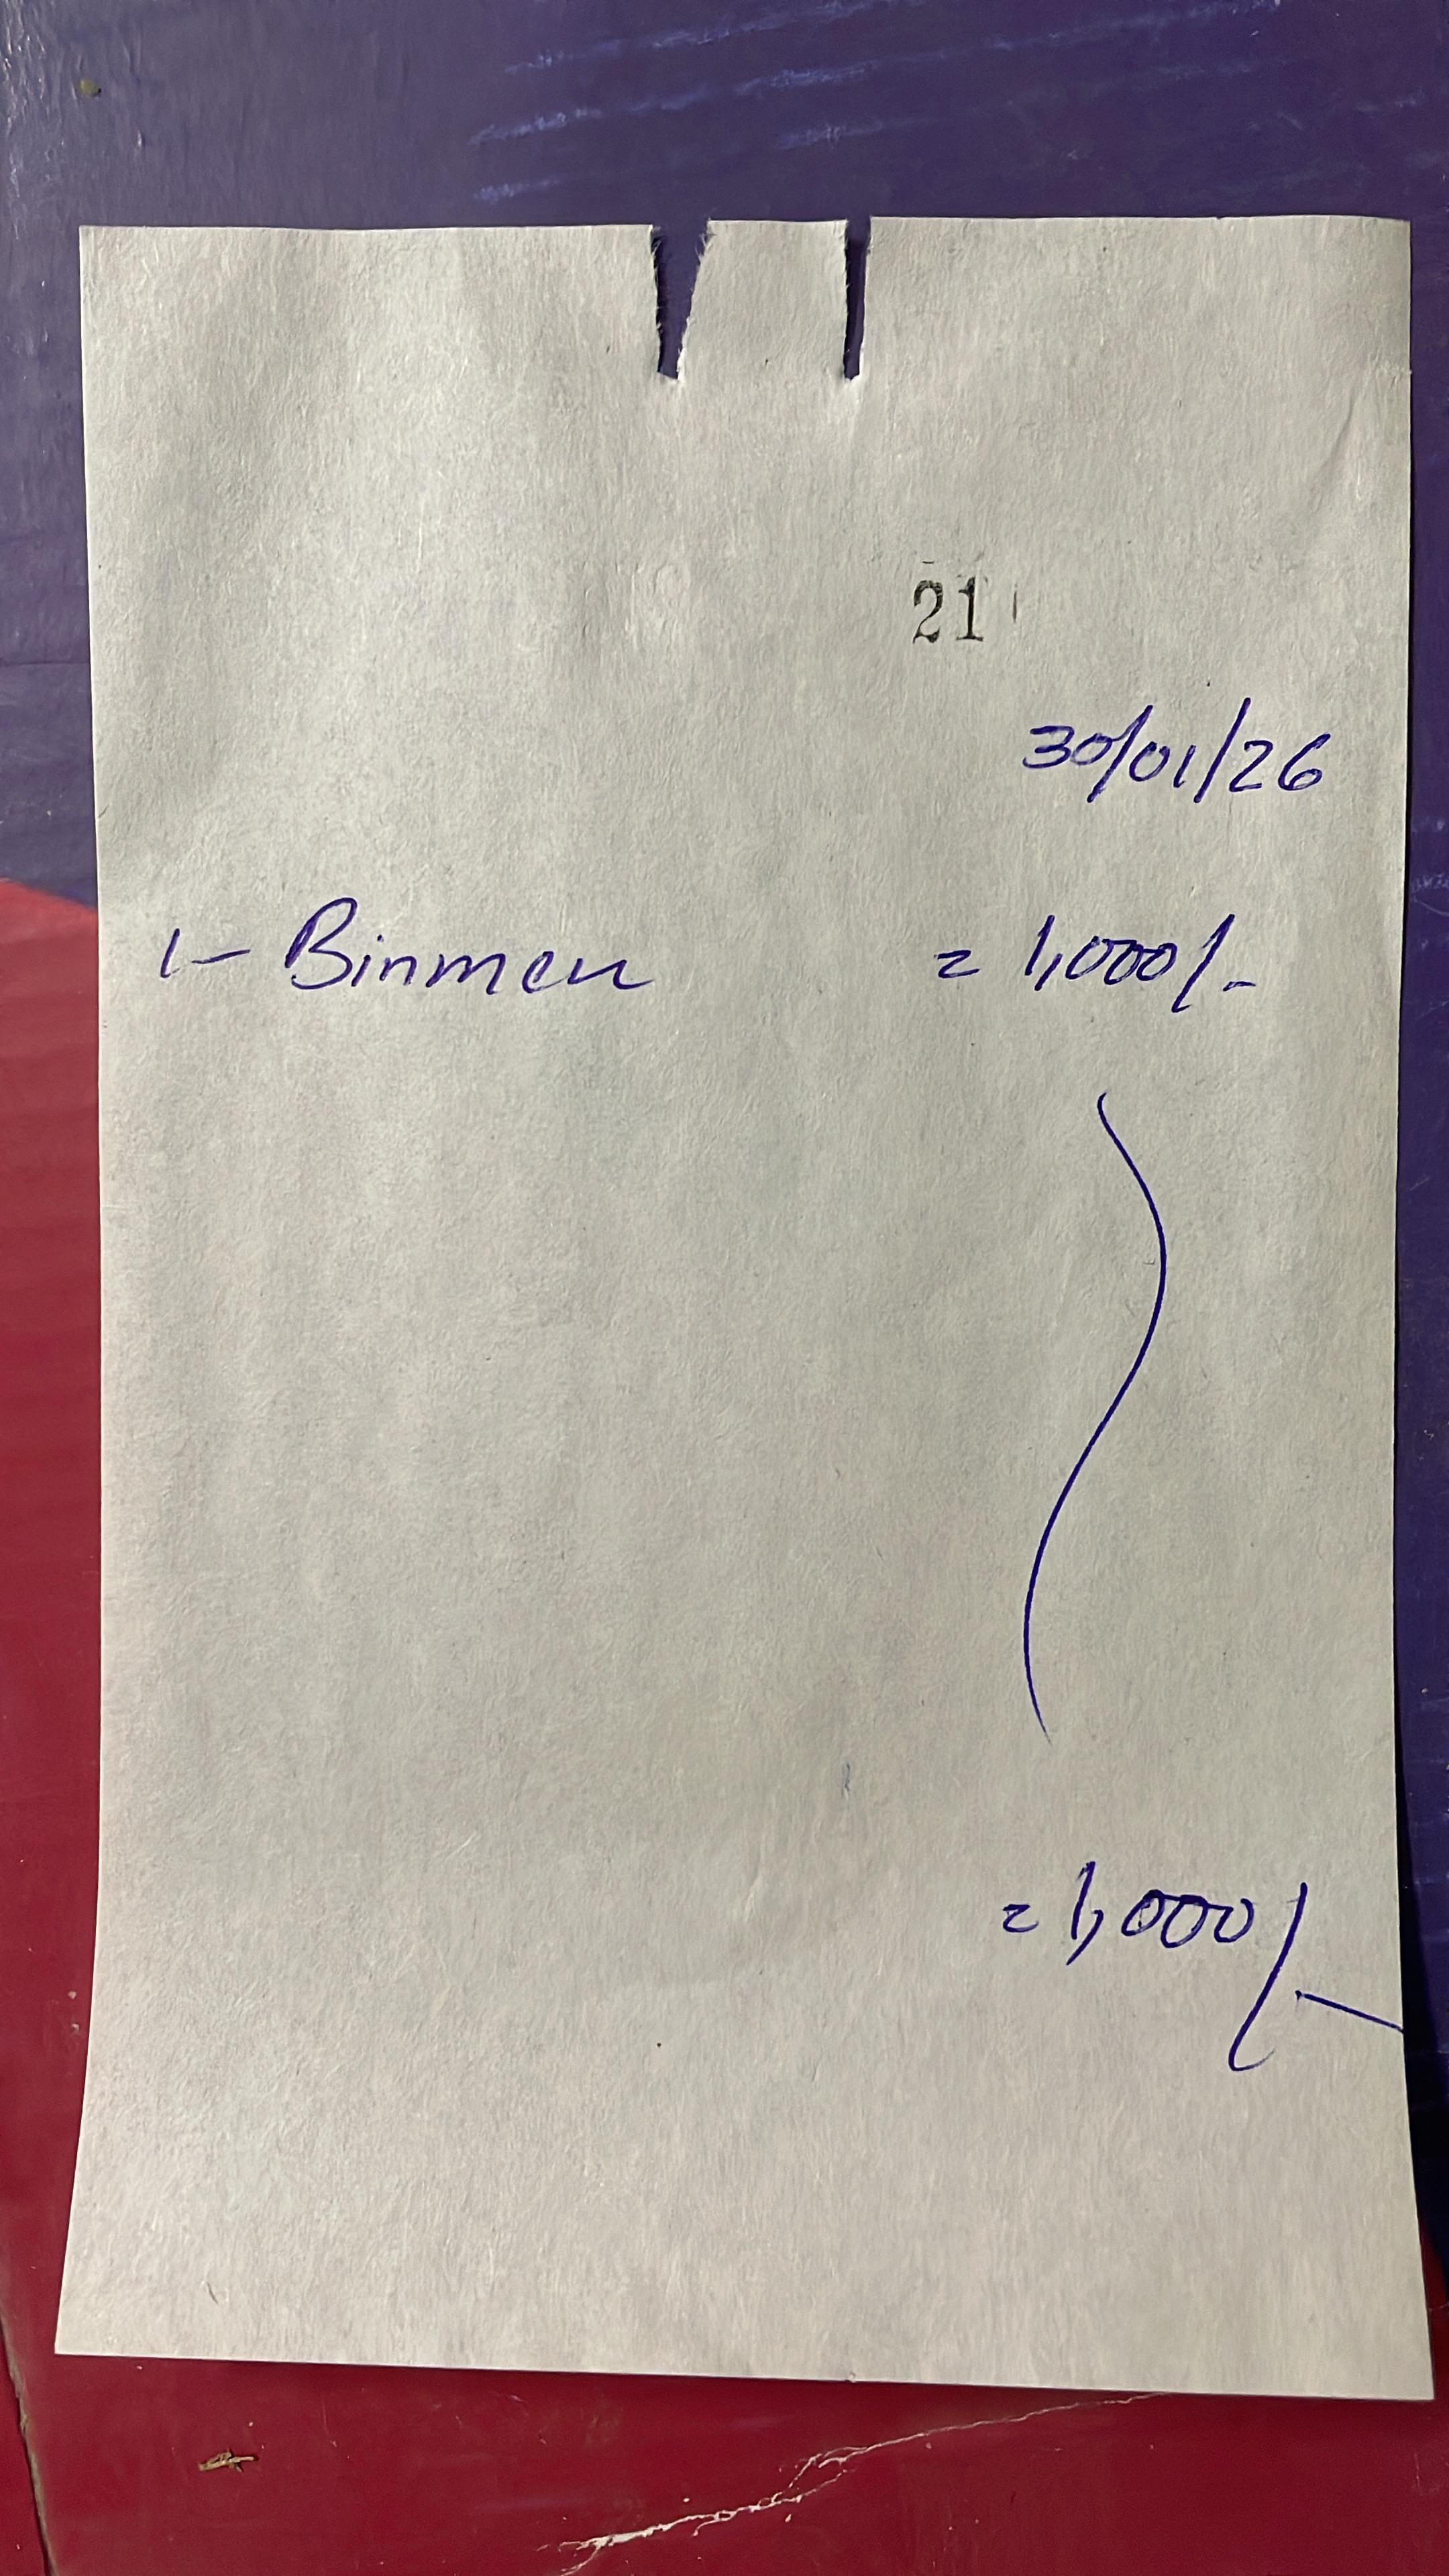 21
30/01/26
1- Binmen = 1,000/-
= 1,000/-